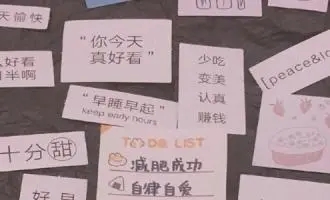 天愉快
WIN
“你今天
真好看”
少吃
变美
认真
赚钱
[peace&lo
好看
半啊
“早睡早起”
keep early hours
TO DO LIST
减肥成功
自律自爱
十分甜
好早